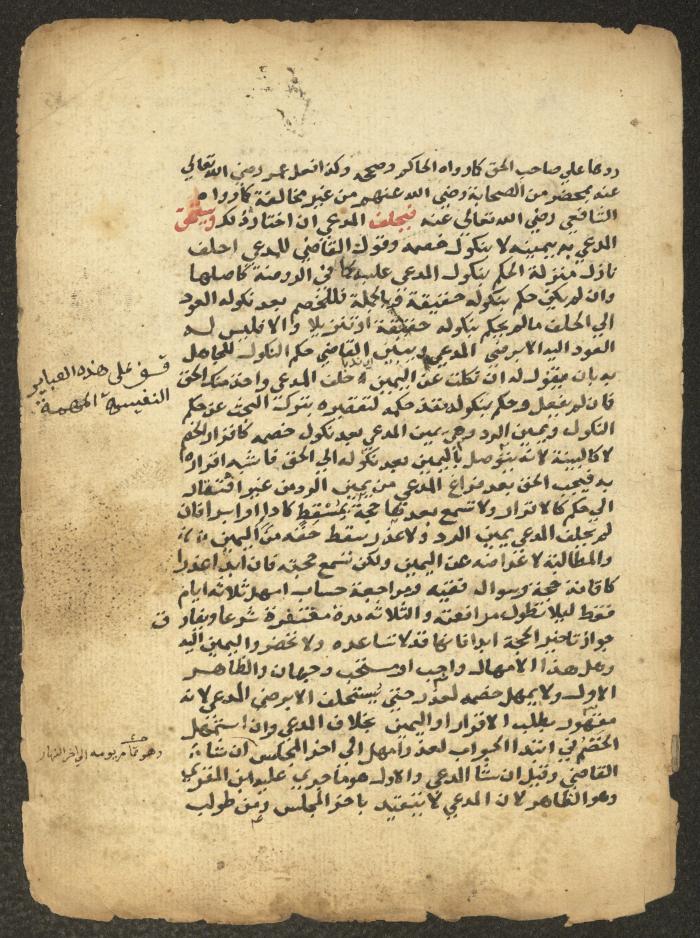 ردها علي صاحب الحق كما رواه الحاكم وصححه وكذا فعل عمر رضي الله تعالي
عنه بمحضر من الصحابة رضي الله عنهم من غير مخالفة كما رواه
الشافعي رضي الله تعالي عنه فيحلف المدعي ان اختار ذلك ويستحق
المدعي به بيمينه لا بنكول خصمه وقول القاضي للمدعي احلف
نازل منزلة الحكم بنكول المدعي عليه كما في الروضة كاصلها
وان لم يكن حكم بنكوله حقيقة وبالجملة فللخصم بعد نكوله العود
الي الحلف ما لم يحكم بنكوله حقيقة او تنزيلا والا فليس له
العود اليه الا برضي المدعي ويبين القاضي حكم النكول للجاهل
به بان يقول له ان نكلت عن اليمين حلف المدعي واخذ منك الحق
فان لم يفعل وحكم بنكوله نفذ حكمه لتقصيره بترك البحث عن حكم
النكول ويمين الرد وهي يمين المدعي بعد نكول خصمه كاقرار الخصم
لا كالبينة لانه يتوصل باليمين بعد نكوله الي الحق فاشبه اقراره
به فيجب الحق بعد فراغ المدعي من يمين الرد من غير افتقار
الي حكم كالاقرار ولا تسمع بعدها حجة بمسقط كاداء او ابراء فان
لم يحلف المدعي يمين الرد ولا عذر سقط حقه من اليمين
والمطالبة لاعراضه عن اليمين ولكن تسمع حجته فان ابدا عذرا
كاقامة حجة وسوال فقيه ومراجعة حساب امهل ثلاثة ايام
فقط ليلا تطول مدافعته والثلاثة مدة مغتفرة شرعا ويفارق
جواز تاخير الحجة ابدا بانها قد لا تساعده ولا تحضر واليمين اليه
وهل هذا الامهال واجب او مستحب وجهان والظاهر
الاول ولا يمهل خصمه لعذر حتي يستحلف الا برضي المدعي لانه
مقهور بطلبه الاقرار او اليمين بخلاف المدعي وان استمهل
الخصم في ابتدا الجواب لعذر امهل الي اخر المجلس ان شاء
القاضي وقيل ان شاء المدعي والاول هو ما جري عليه ابن المقري
وهو الظاهر لان المدعي لا يتقيد باخر المجلس ومن طولب
قف علي هذه العباير
النفيسة المهمة
وهو تمام يومه الي اخر النهار